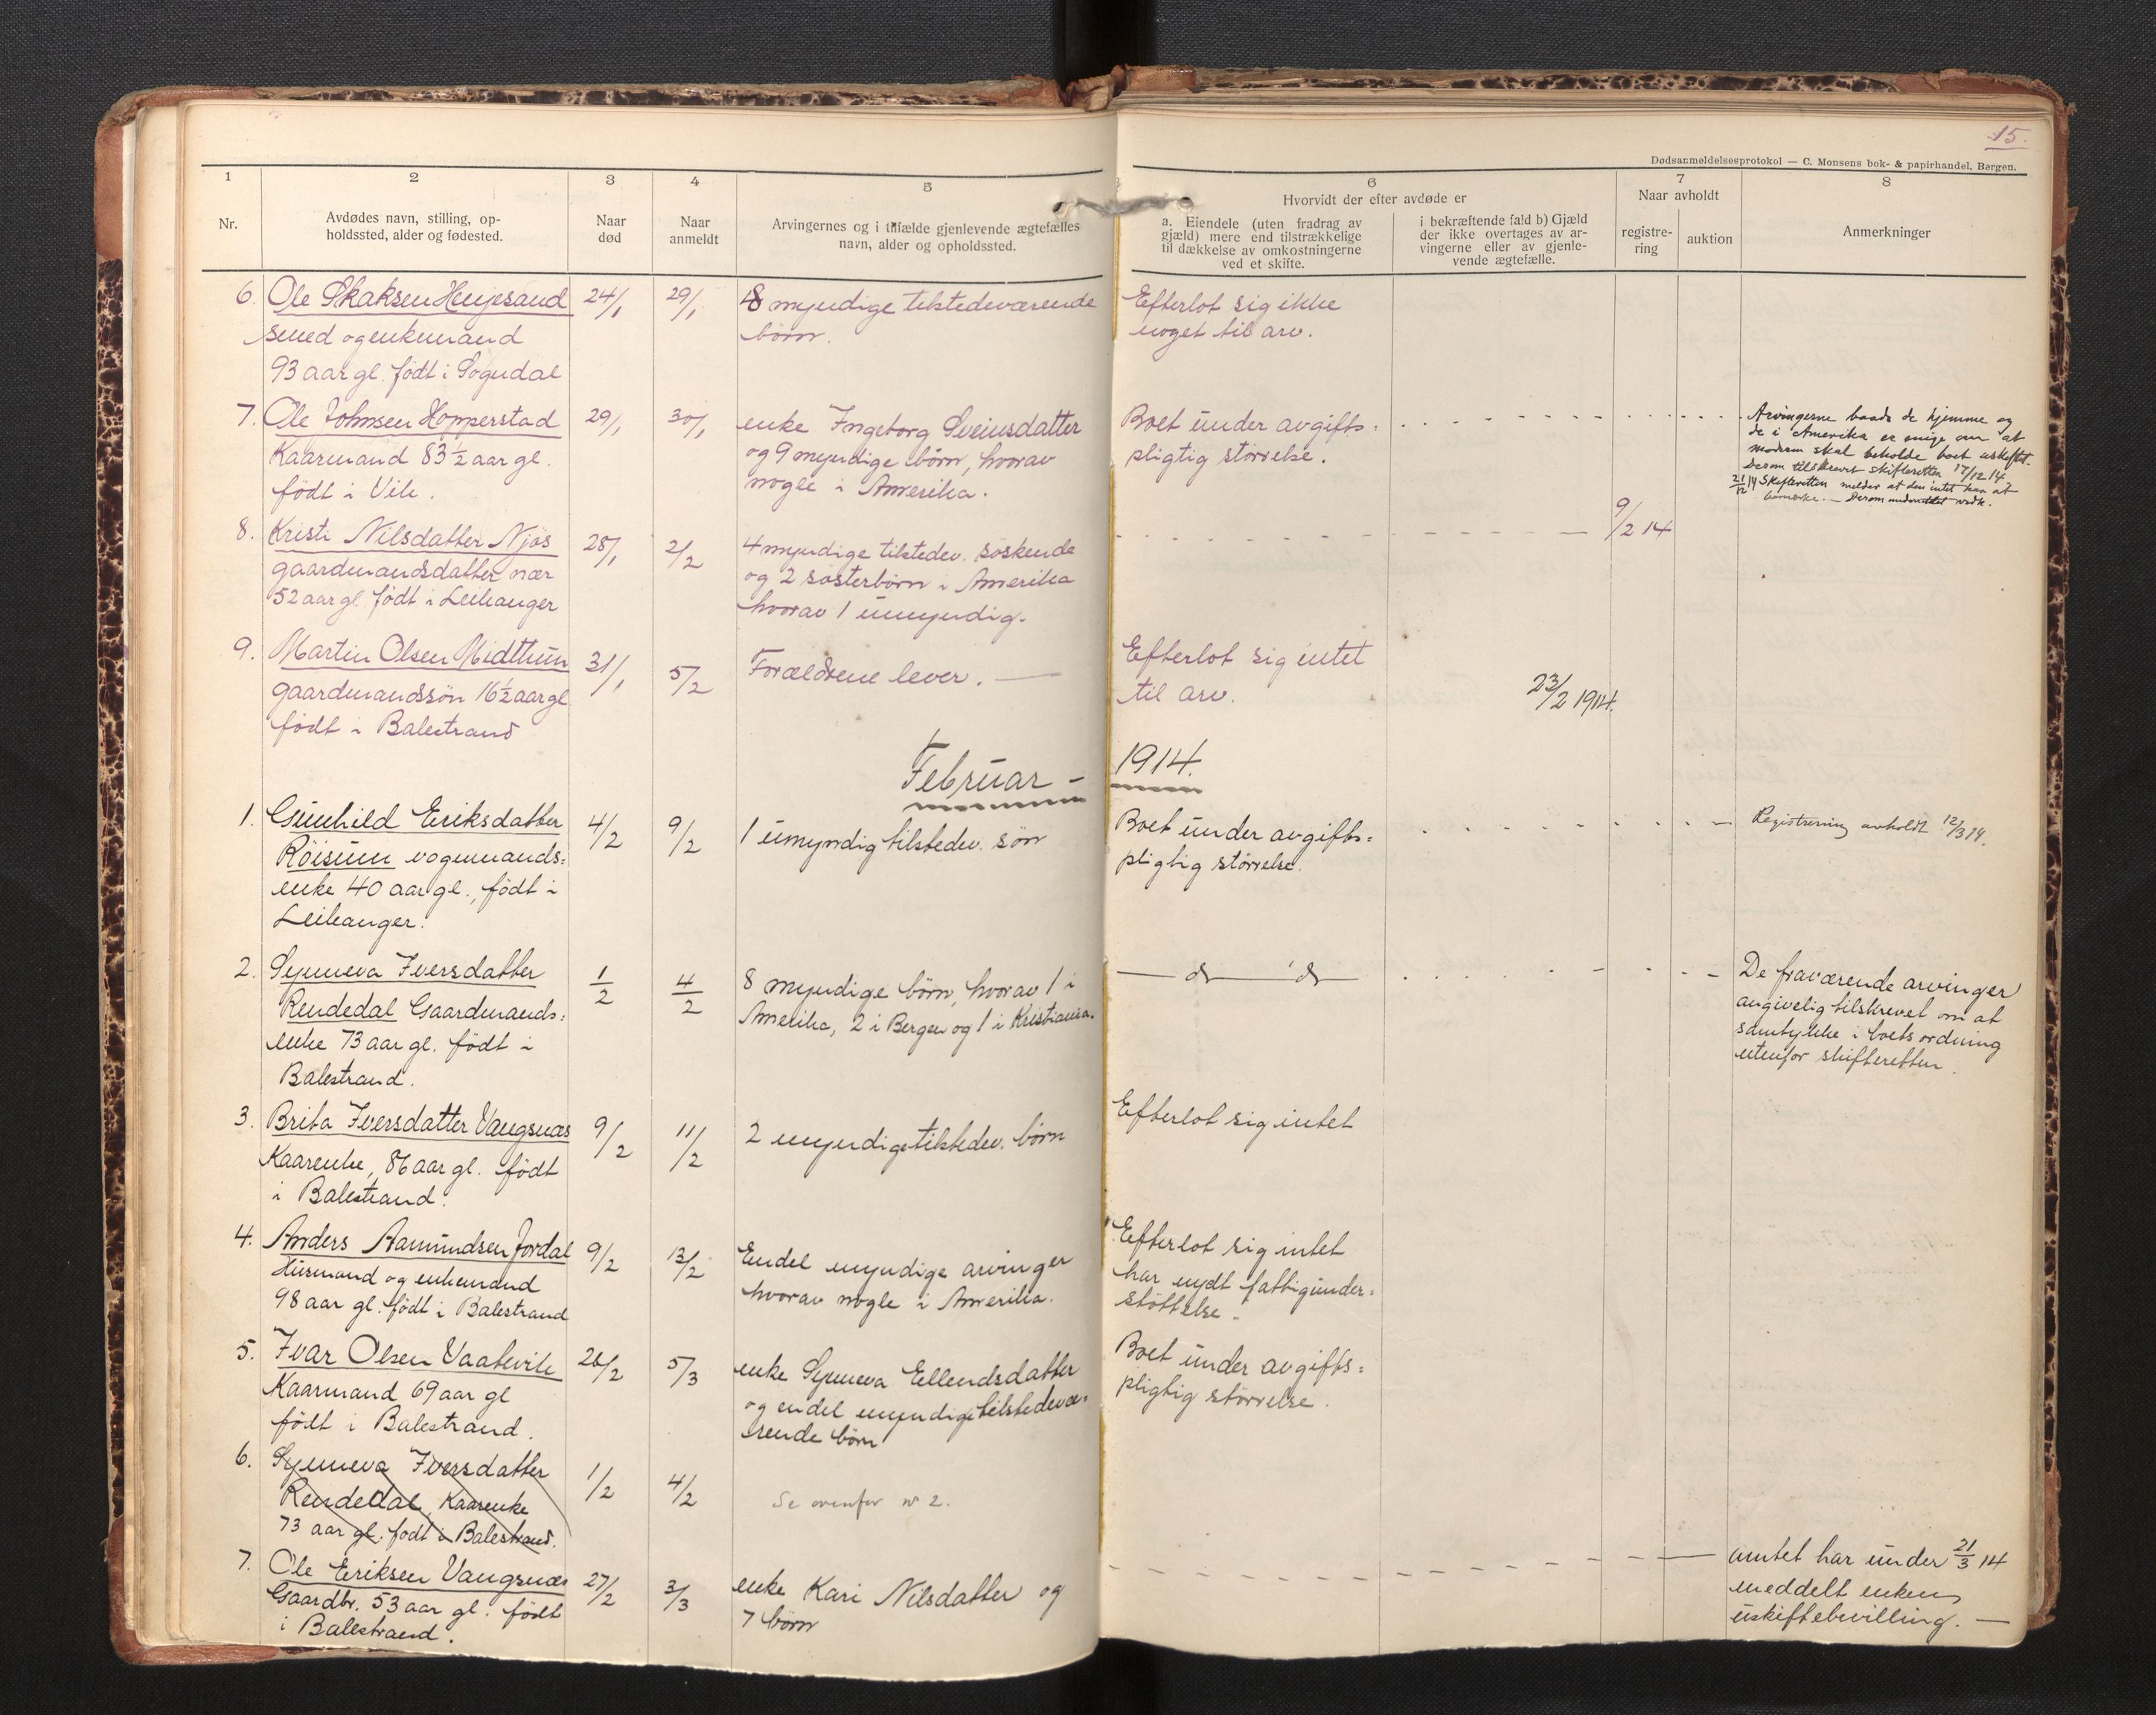 15.
Dødsanmeldelsesprotokol — C. Monsens bok- & papirhandel, Bergen.
1 2 3 4 5 6 7 8
Nr.
Avdødes navn, stilling, op-
holdssted, alder og fødested.
Naar
død
Naar
anmeldt
Arvingernes og i tilfælde gjenlevende ægtefælles
navn, alder og opholdssted.
Hvorvidt der efter avdøde er
a. Eiendele (uten fradrag av
gjæld) mere end tilstrækkelige
til dækkelse av omkostningerne
ved et skifte.
i bekræftende fald b) Gjæld
der ikke overtages av ar-
vingerne eller av gjenle-
vende ægtefælle.
Naar avholdt
registre-
ring
auktion
Anmerkninger
6. Ole Skaksen Henjesand 24/1 29/1 8 myndige tilstedeværende Efterlot sig ikke
smed og enkemand børn. noget til arv.
93 aar gl. født i Sogndal
7. Ole Johnsen Hopperstad 29/1 30/1 enke Ingeborg Sveinsdatter Boet under avgifts=
Kaarmand 83½ aar gl. og 9 myndige børn, hvorav pligtig størrelse.
født i Vik. nogle i Amerika.
Arvingerne baade de hjemme og
de i Amerika er enige om at
moderen skal beholde boet uskiftet.
Derom tilskrevet skifteretten 17/12 14.
21/12 14 Skifteretten melder at den intet har at
bemerke. — Derom underrettet vedk.
8. Kristi Nilsdatter Njøs 28/1 2/2 4 myndige tilstedev. søskende 9/2 14
gaardmandsdatter nær og 2 søsterbørn i Amerika
52 aar gl. født i Leikanger hvorav 1 umyndig.
9. Martin Olsen Midthun 31/1 5/2 Forældrene lever. — Efterlot sig intet
gaardmandssøn 16½ aar gl. til arv. 23/2 1914.
født i Balestrand
Februar - 1914.
1. Gunhild Eriksdatter 4/2 9/2 1 umyndig tilstedev. søn Boet under avgifts= Registrering avholdt 12/3 14.
Röisum vognmands= pligtig størrelse.
enke 40 aar gl., født i
Leikanger.
2. Synneva Iversdatter 1/2 4/2 8 myndige børn, hvorav 1 i — do — do — De fraværende arvinger
Rendedal Gaardmands= Amerika, 2 i Bergen og 1 i Kristiania. angivelig tilskrevet om at
enke 73 aar gl. født i samtykke i boets ordning
Balestrand. utenfor skifteretten.
3. Brita Iversdatter Vangsnæs 9/2 11/2 2 myndige tilstedev. børn Efterlot sig intet
Kaarenke, 86 aar gl. født
i Balestrand.
4. Anders Aamundsen Jordal 9/2 13/2 Endel myndige arvinger Efterlot sig intet
Husmand og enkemand hvorav nogle i Amerika. har nydt fattigunder=
98 aar gl. født i Balestrand støttelse.
5. Ivar Olsen Vaatevik 26/2 5/3 enke Synneva Ellendsdatter Boet under avgifts=
Kaarmand 69 aar gl og endel myndige tilstedevæ= pligtig størrelse.
født i Balestrand. rende børn
6. Synneva Iversdatter 1/2 4/2 Se ovenfor nr 2.
Rendedal, Kaarenke
73 aar gl. født i Balestrand.
7. Ole Eriksen Vangsnæs 27/2 3/3 enke Kari Nilsdatter og amtet har under 21/3 14
Gaardbr. 53 aar gl. født 7 børn meddelt enken
i Balestrand. uskiftebevilling. —